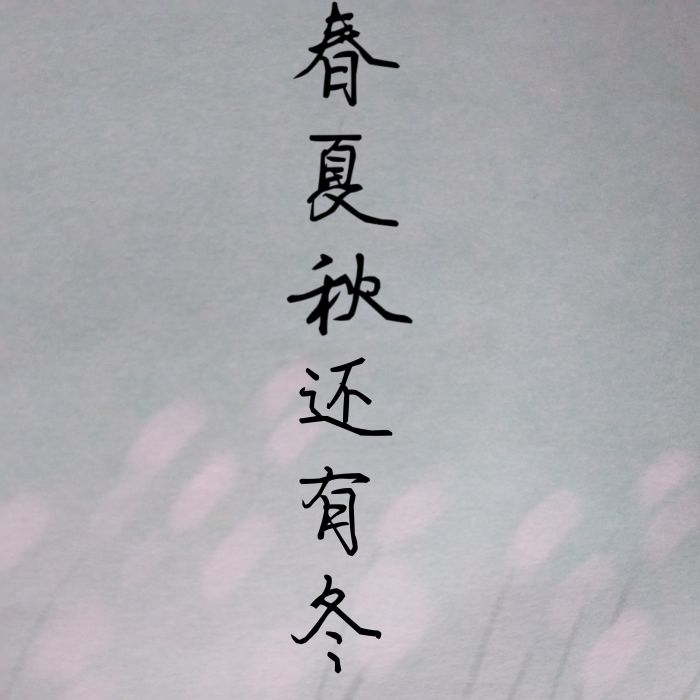 春夏秋还有冬